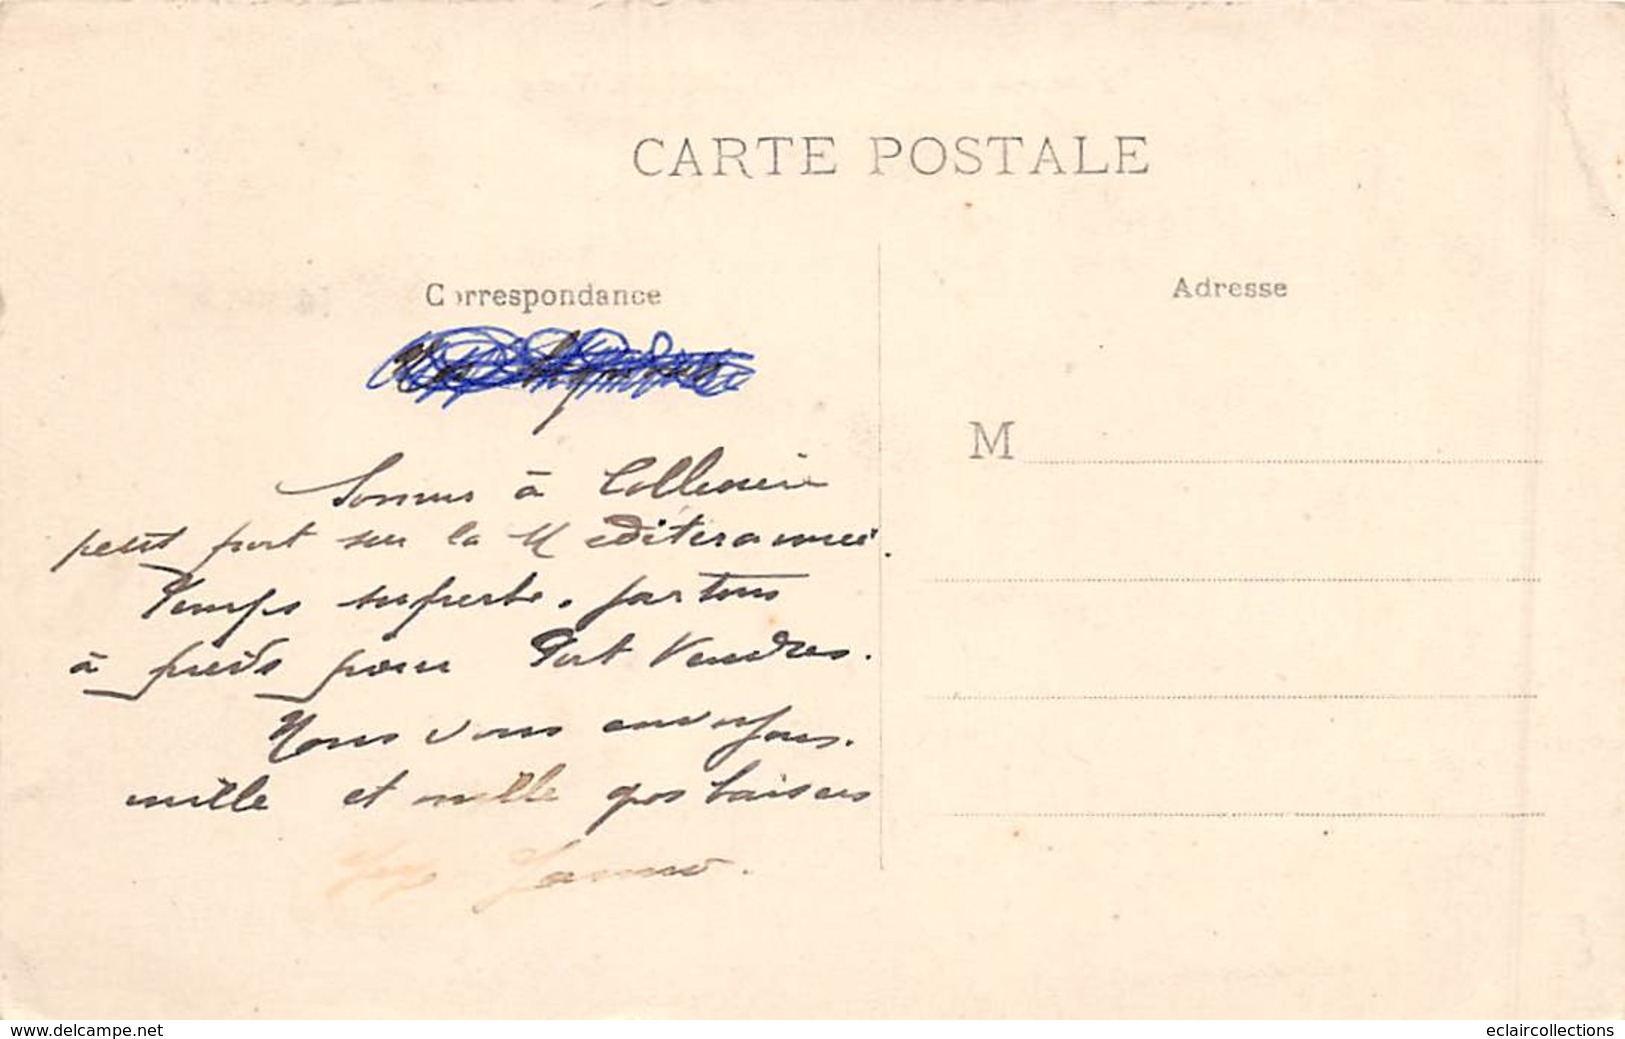 CARTE POSTALE
Correspondance
Adresse
M
Sommes à Collioure
petit port sur la Mediterannee.
Temps superbe. partons
à pieds pour Port Vendres.
Nous vous envoyons.
mille et mille gros baisers
www.delcampe.net
eclaircollections